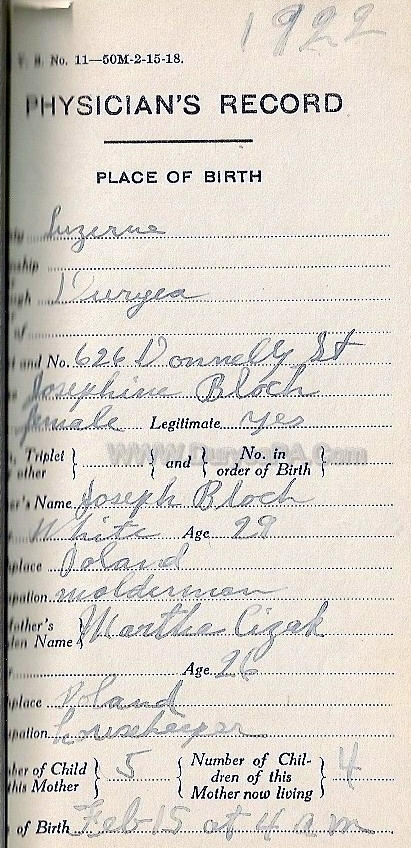 1922
V. S. No. 11—50M-2-15-18.
PHYSICIAN'S RECORD
PLACE OF BIRTH
Luzerne
ship
Duryea
of
and No. 626 Donnelly St
Josephine Bloch
female Legitimate yes
Triplet other } and { No. in order of Birth }
www.DuryeaPA.Com
er's Name Joseph Bloch
White Age 29
place Poland
pation molderman
other's
en Name } Martha Cizak
Age 26
place Poland
pation housekeeper
ber of Child this Mother } 5 { Number of Children of this Mother now living } 4
of Birth Feb 15 at 4 a m